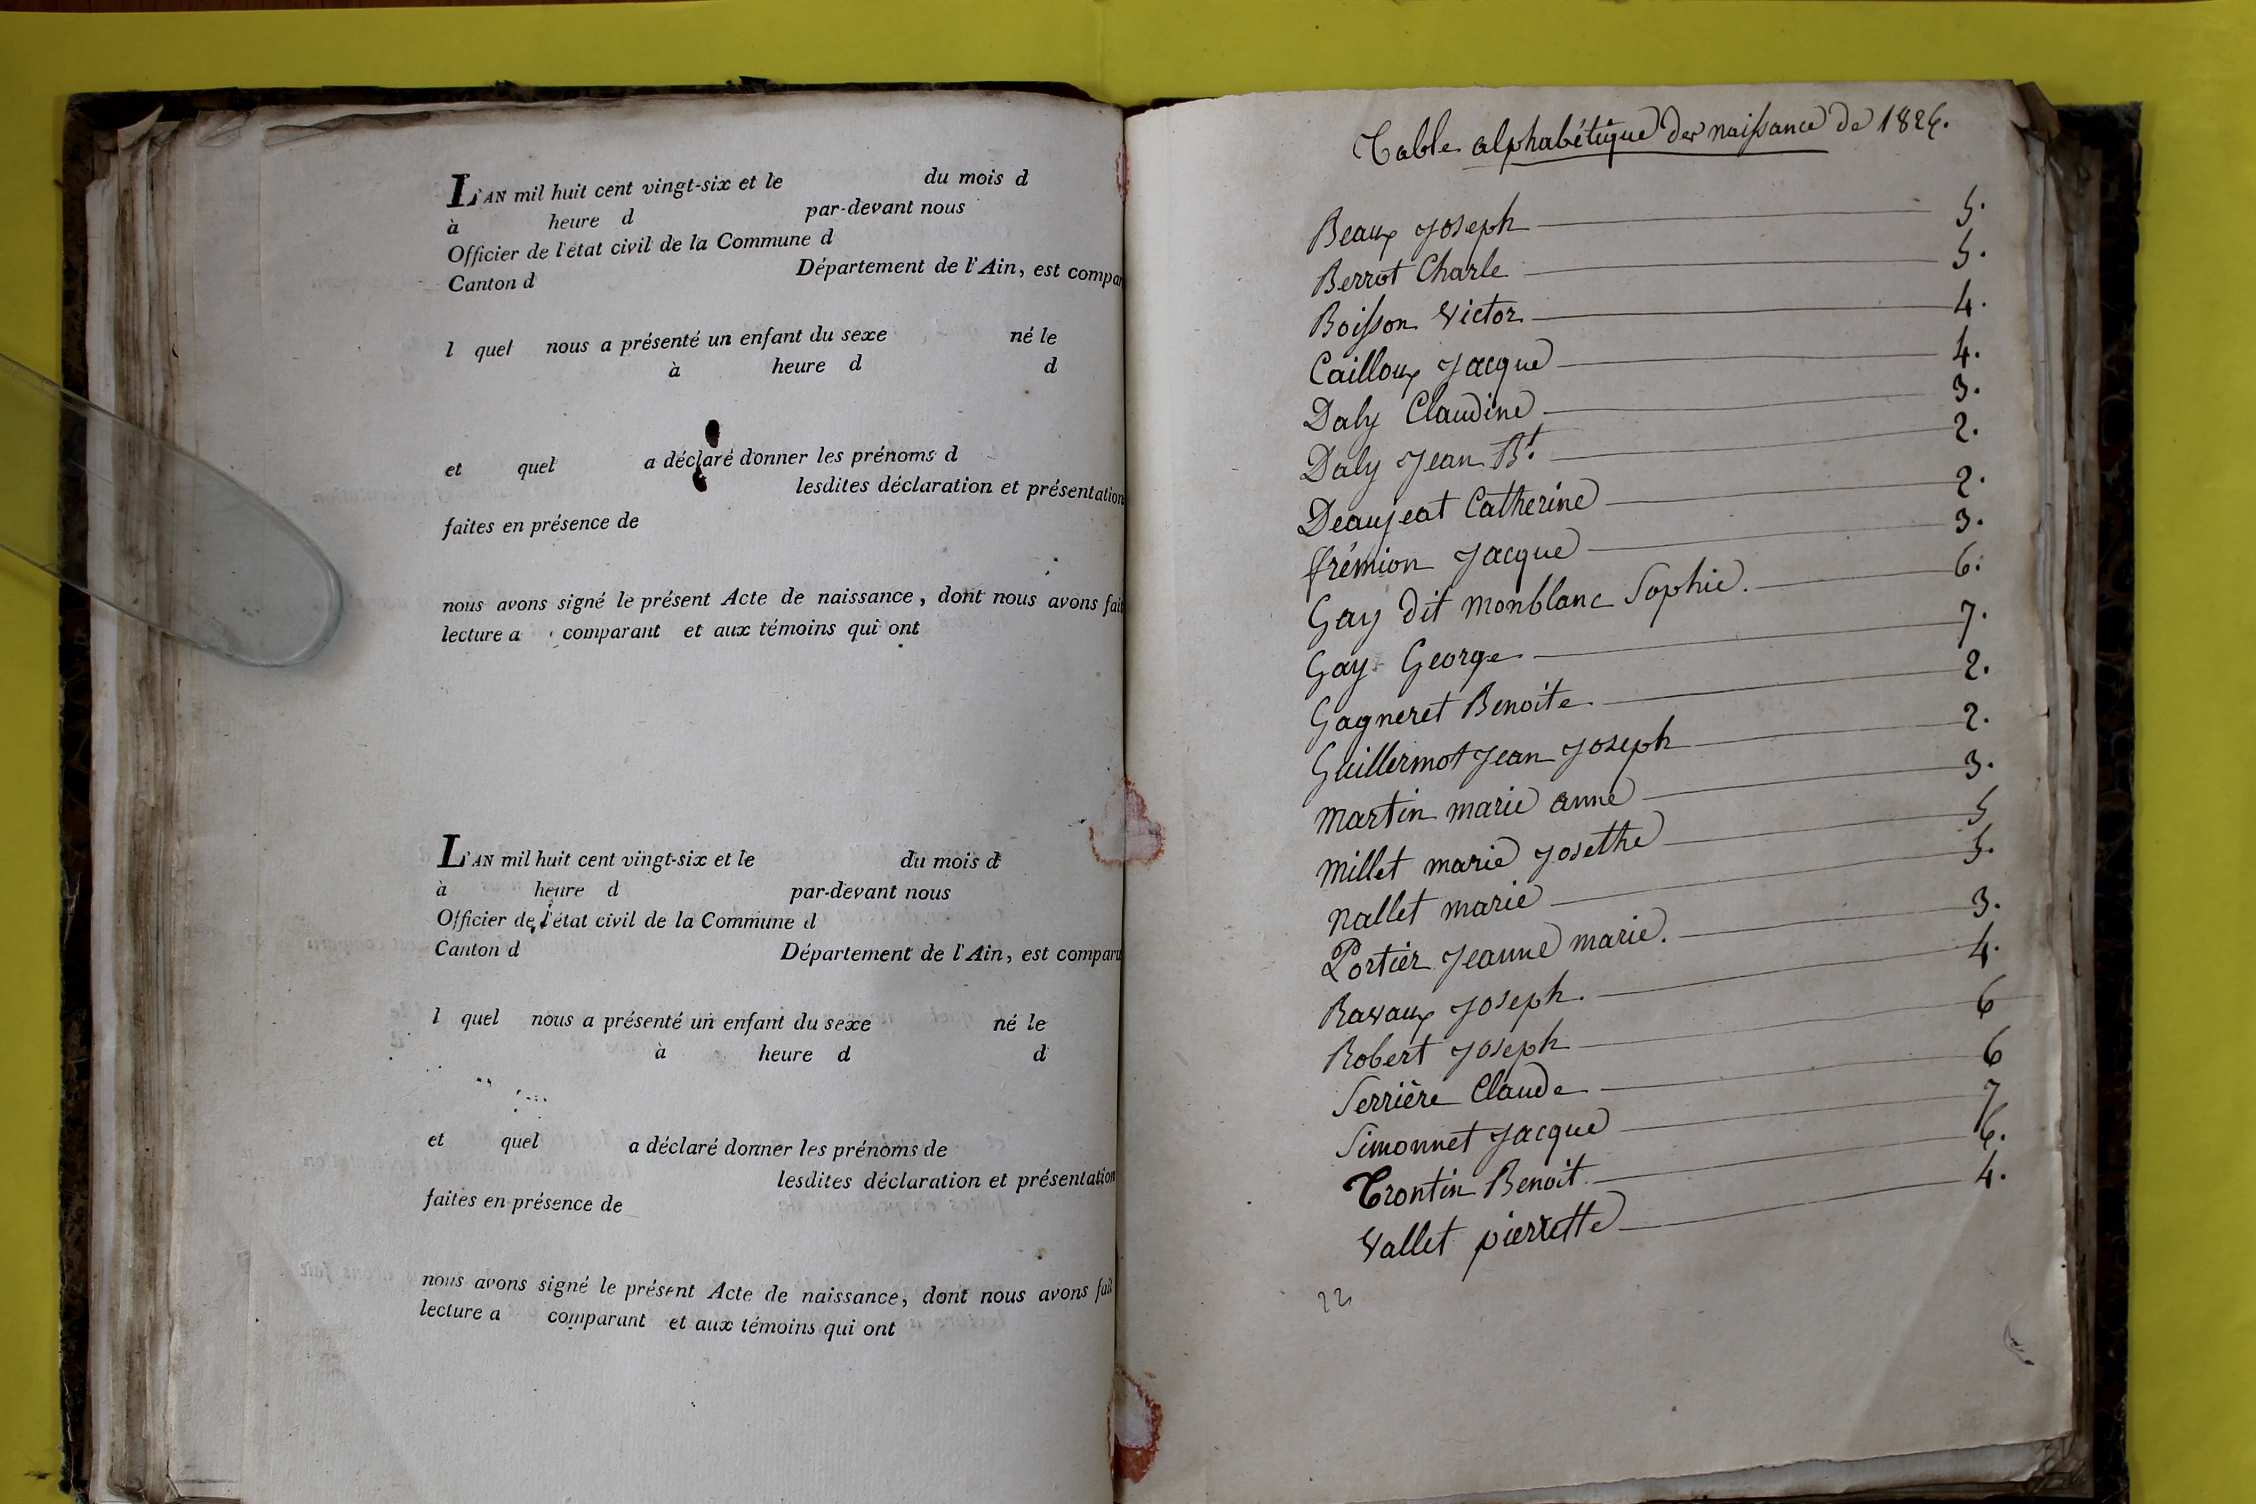 L'AN mil huit cent vingt-six et le du mois d
à heure d par-devant nous
Officier de l'état civil de la Commune d
Canton d Département de l'Ain, est compar
l quel nous a présenté un enfant du sexe né le
à heure d d
et quel a déclaré donner les prénoms d
lesdites déclaration et présentation
faites en présence de
nous avons signé le présent Acte de naissance, dont nous avons fait
lecture a comparant et aux témoins qui ont
L'AN mil huit cent vingt-six et le du mois d
à heure d par-devant nous
Officier de l'état civil de la Commune d
Canton d Département de l'Ain, est comparu
l quel nous a présenté un enfant du sexe né le
à heure d d
et quel a déclaré donner les prénoms de
lesdites déclaration et présentation
faites en présence de
nous avons signé le présent Acte de naissance, dont nous avons fait
lecture a comparant et aux témoins qui ont
Table alphabétique des naissance de 1826.
Beaux Joseph 5.
Berrot Charle 5.
Boisson Victor 4.
Cailloux Jacque 4.
Daly Claudine 3.
Daly Jean Bt. 2.
Deaujeat Catherine 2.
frémion Jacque 3.
Gay dit monblanc Sophie. 6.
Gay George 7.
Gagneret Benoite 2.
Guillermot Jean Joseph 2.
martin marie anne 3.
millet marie Josethe 5
nallet marie 5.
Portier Jeanne marie. 3.
Ravaux Joseph. 4.
Robert Joseph 6
Serrière Claude 6
Simonnet Jacque 7
Trontin Benoit. 6.
Vallet pierrette 4.
22